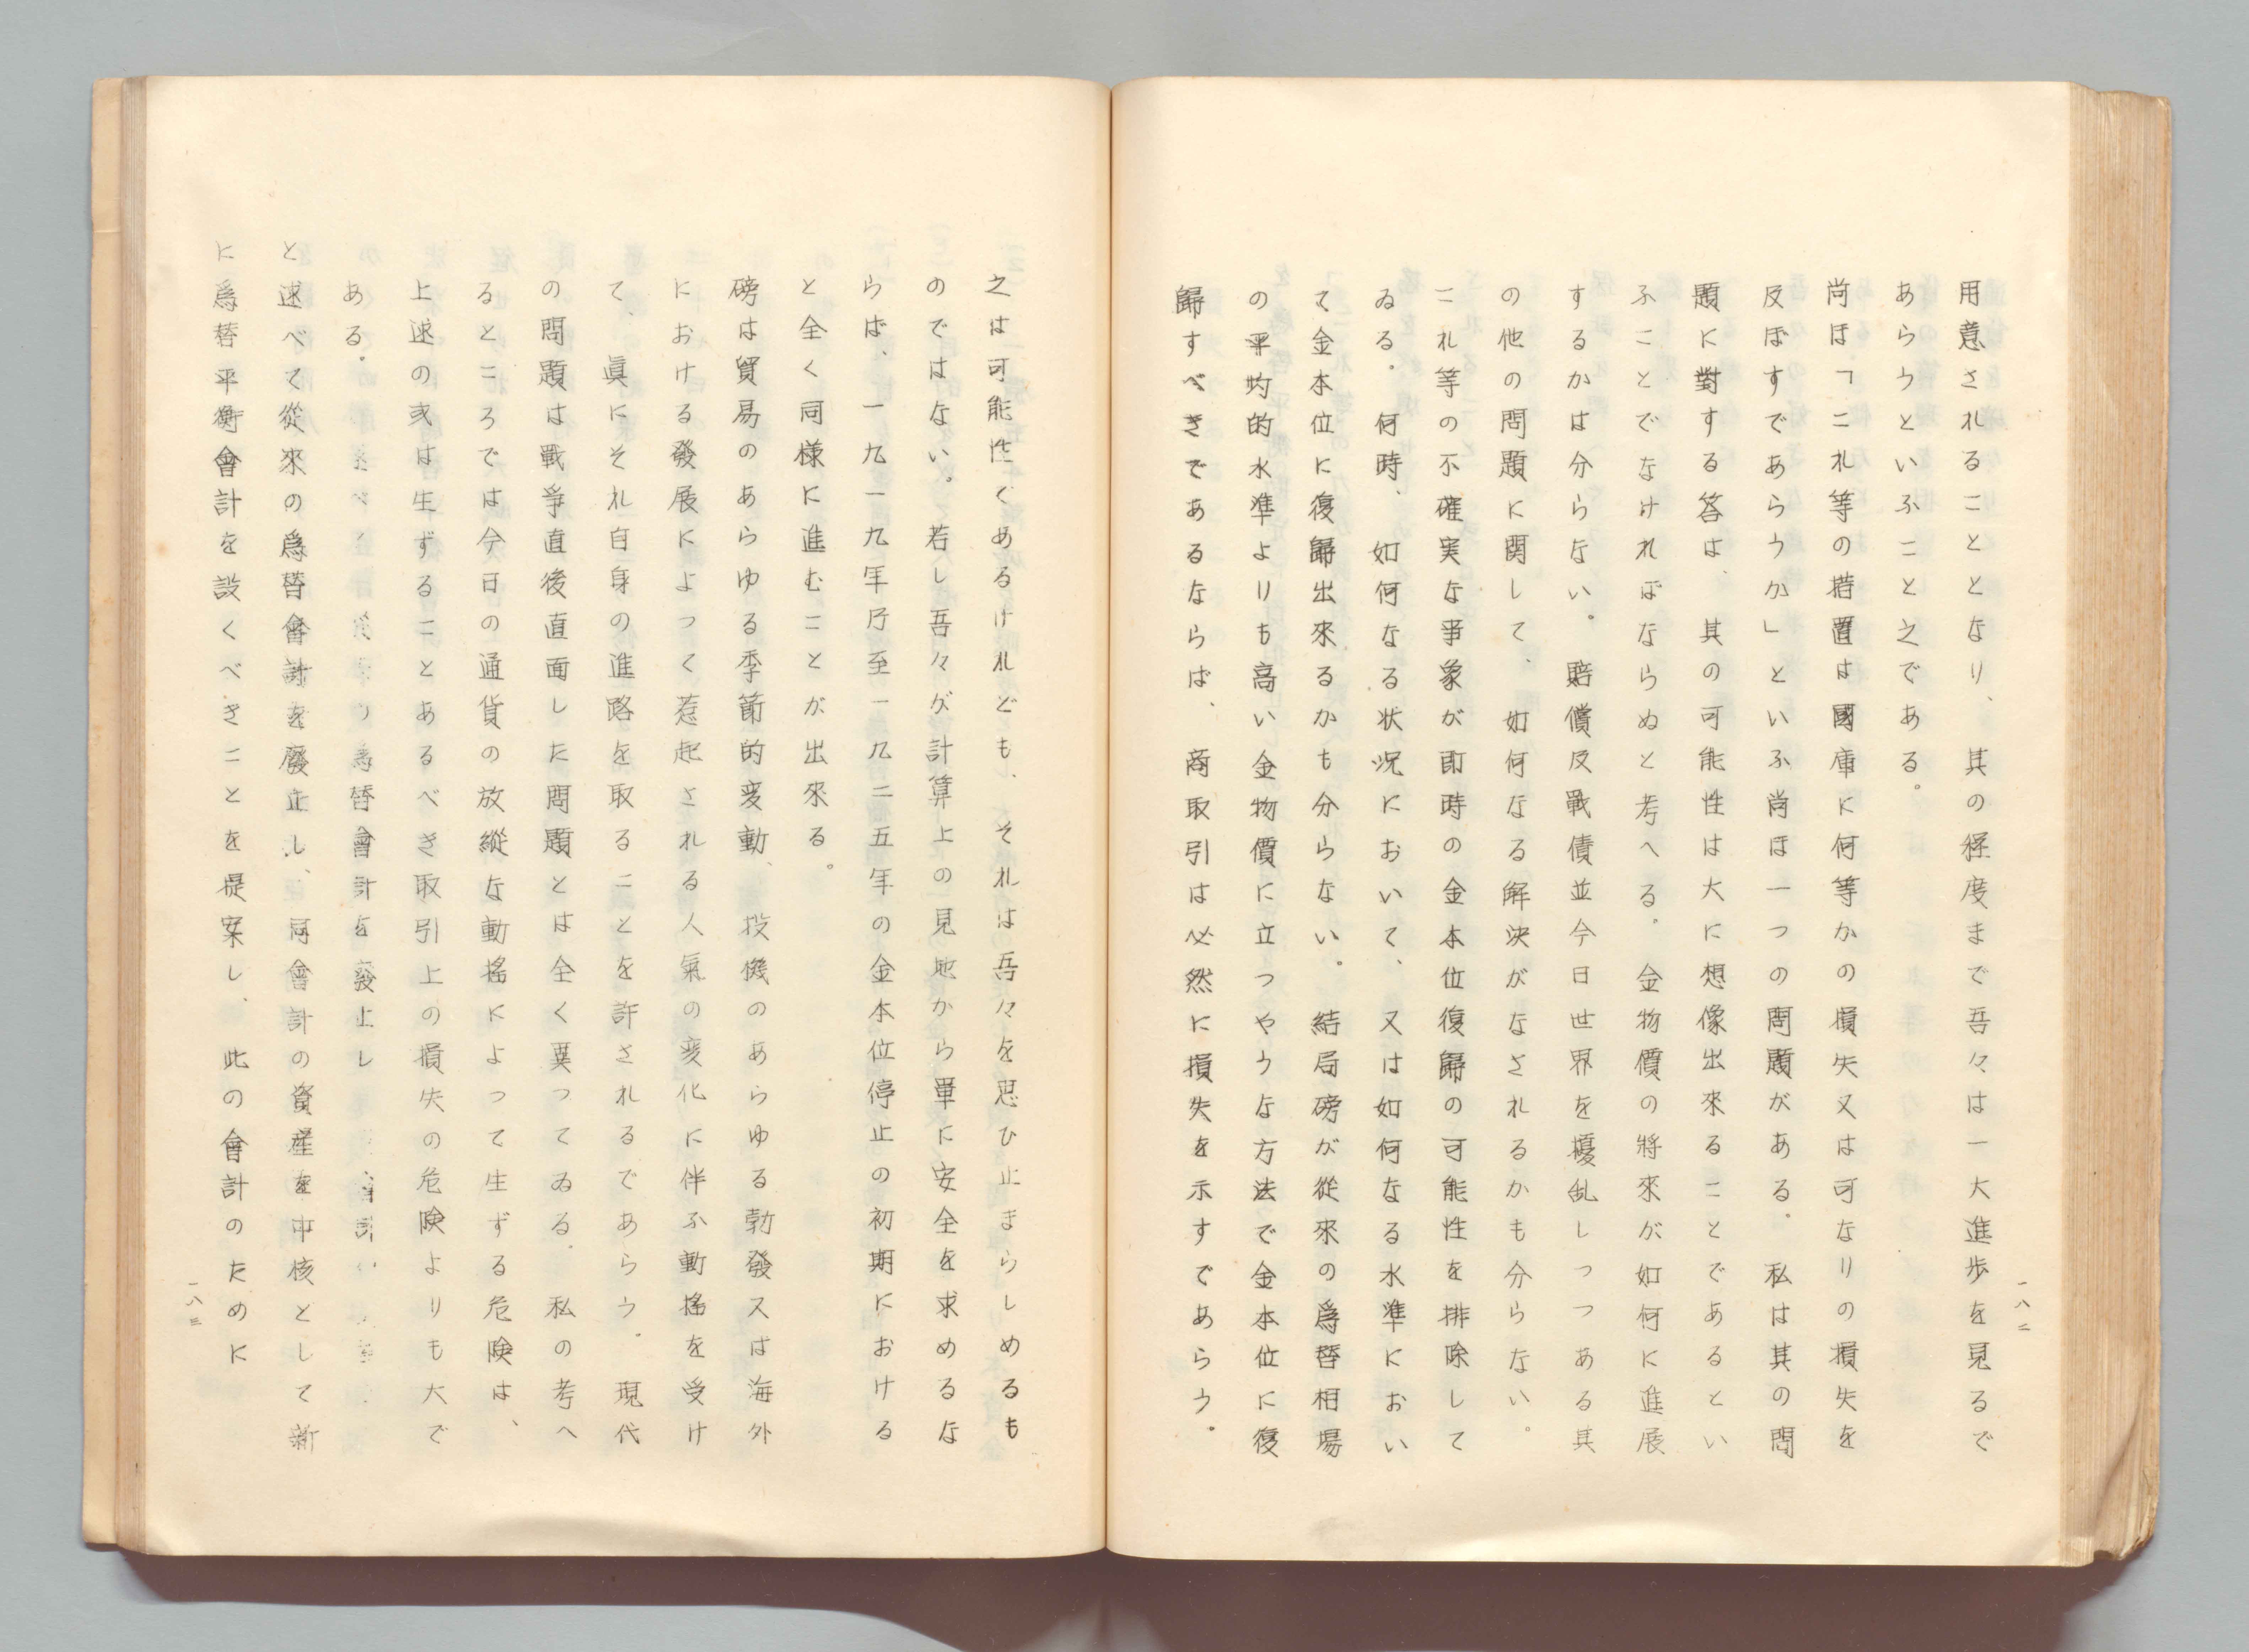 一八二
用意されることとなり、其の経度まで吾々は一大進歩を見るで
あらうといふこと之である。
尚ほ「これ等の措置は國庫に何等かの損失又は可なりの損失を
反ぼすであらうか」といふ尚ほ一つの問題がある。私は其の問
題に對する答は、其の可能性は大に想像出來ることであるとい
ふことでなければならぬと考へる。金物價の將來が如何に進展
するかは分らない。賠償反戰債並今日世界を擾乱しつつある其
の他の問題に関して、如何なる解決がなされるかも分らない。
これ等の不確実な事象が即時の金本位復歸の可能性を排除して
ゐる。何時、如何なる状況において、又は如何なる水準におい
て金本位に復歸出來るかも分らない。結局磅が從來の爲替相場
の平均的水準よりも高い金物價に立つやうな方法で金本位に復
歸すべきであるならば、商取引は必然に損失を示すであらう。
之は可能性くあるけれども、それは吾々を思ひ止まらしめるも
のではない。若し吾々が計算上の見地から單に安全を求めるな
らば、一九一九年乃至一九二五年の金本位停止の初期における
と全く同様に進むことが出來る。
磅は貿易のあらゆる季節的変動、投機のあらゆる勃發又は海外
における發展によつて惹起される人氣の変化に伴ふ動揺を受け
て、眞にそれ自身の進路を取ることを許されるであらう。現代
の問題は戰爭直後直面した問題とは全く異つてゐる。私の考へ
るところでは今日の通貨の放縱な動揺によつて生ずる危険は、
上述の或は生ずることあるべき取引上の損失の危険よりも大で
ある。
爲替會計を廢止し
と述べて從來の爲替會計を廢止し、同會計の資産を中核として新
に爲替平衡會計を設くべきことを提案し、此の會計のために
一八三